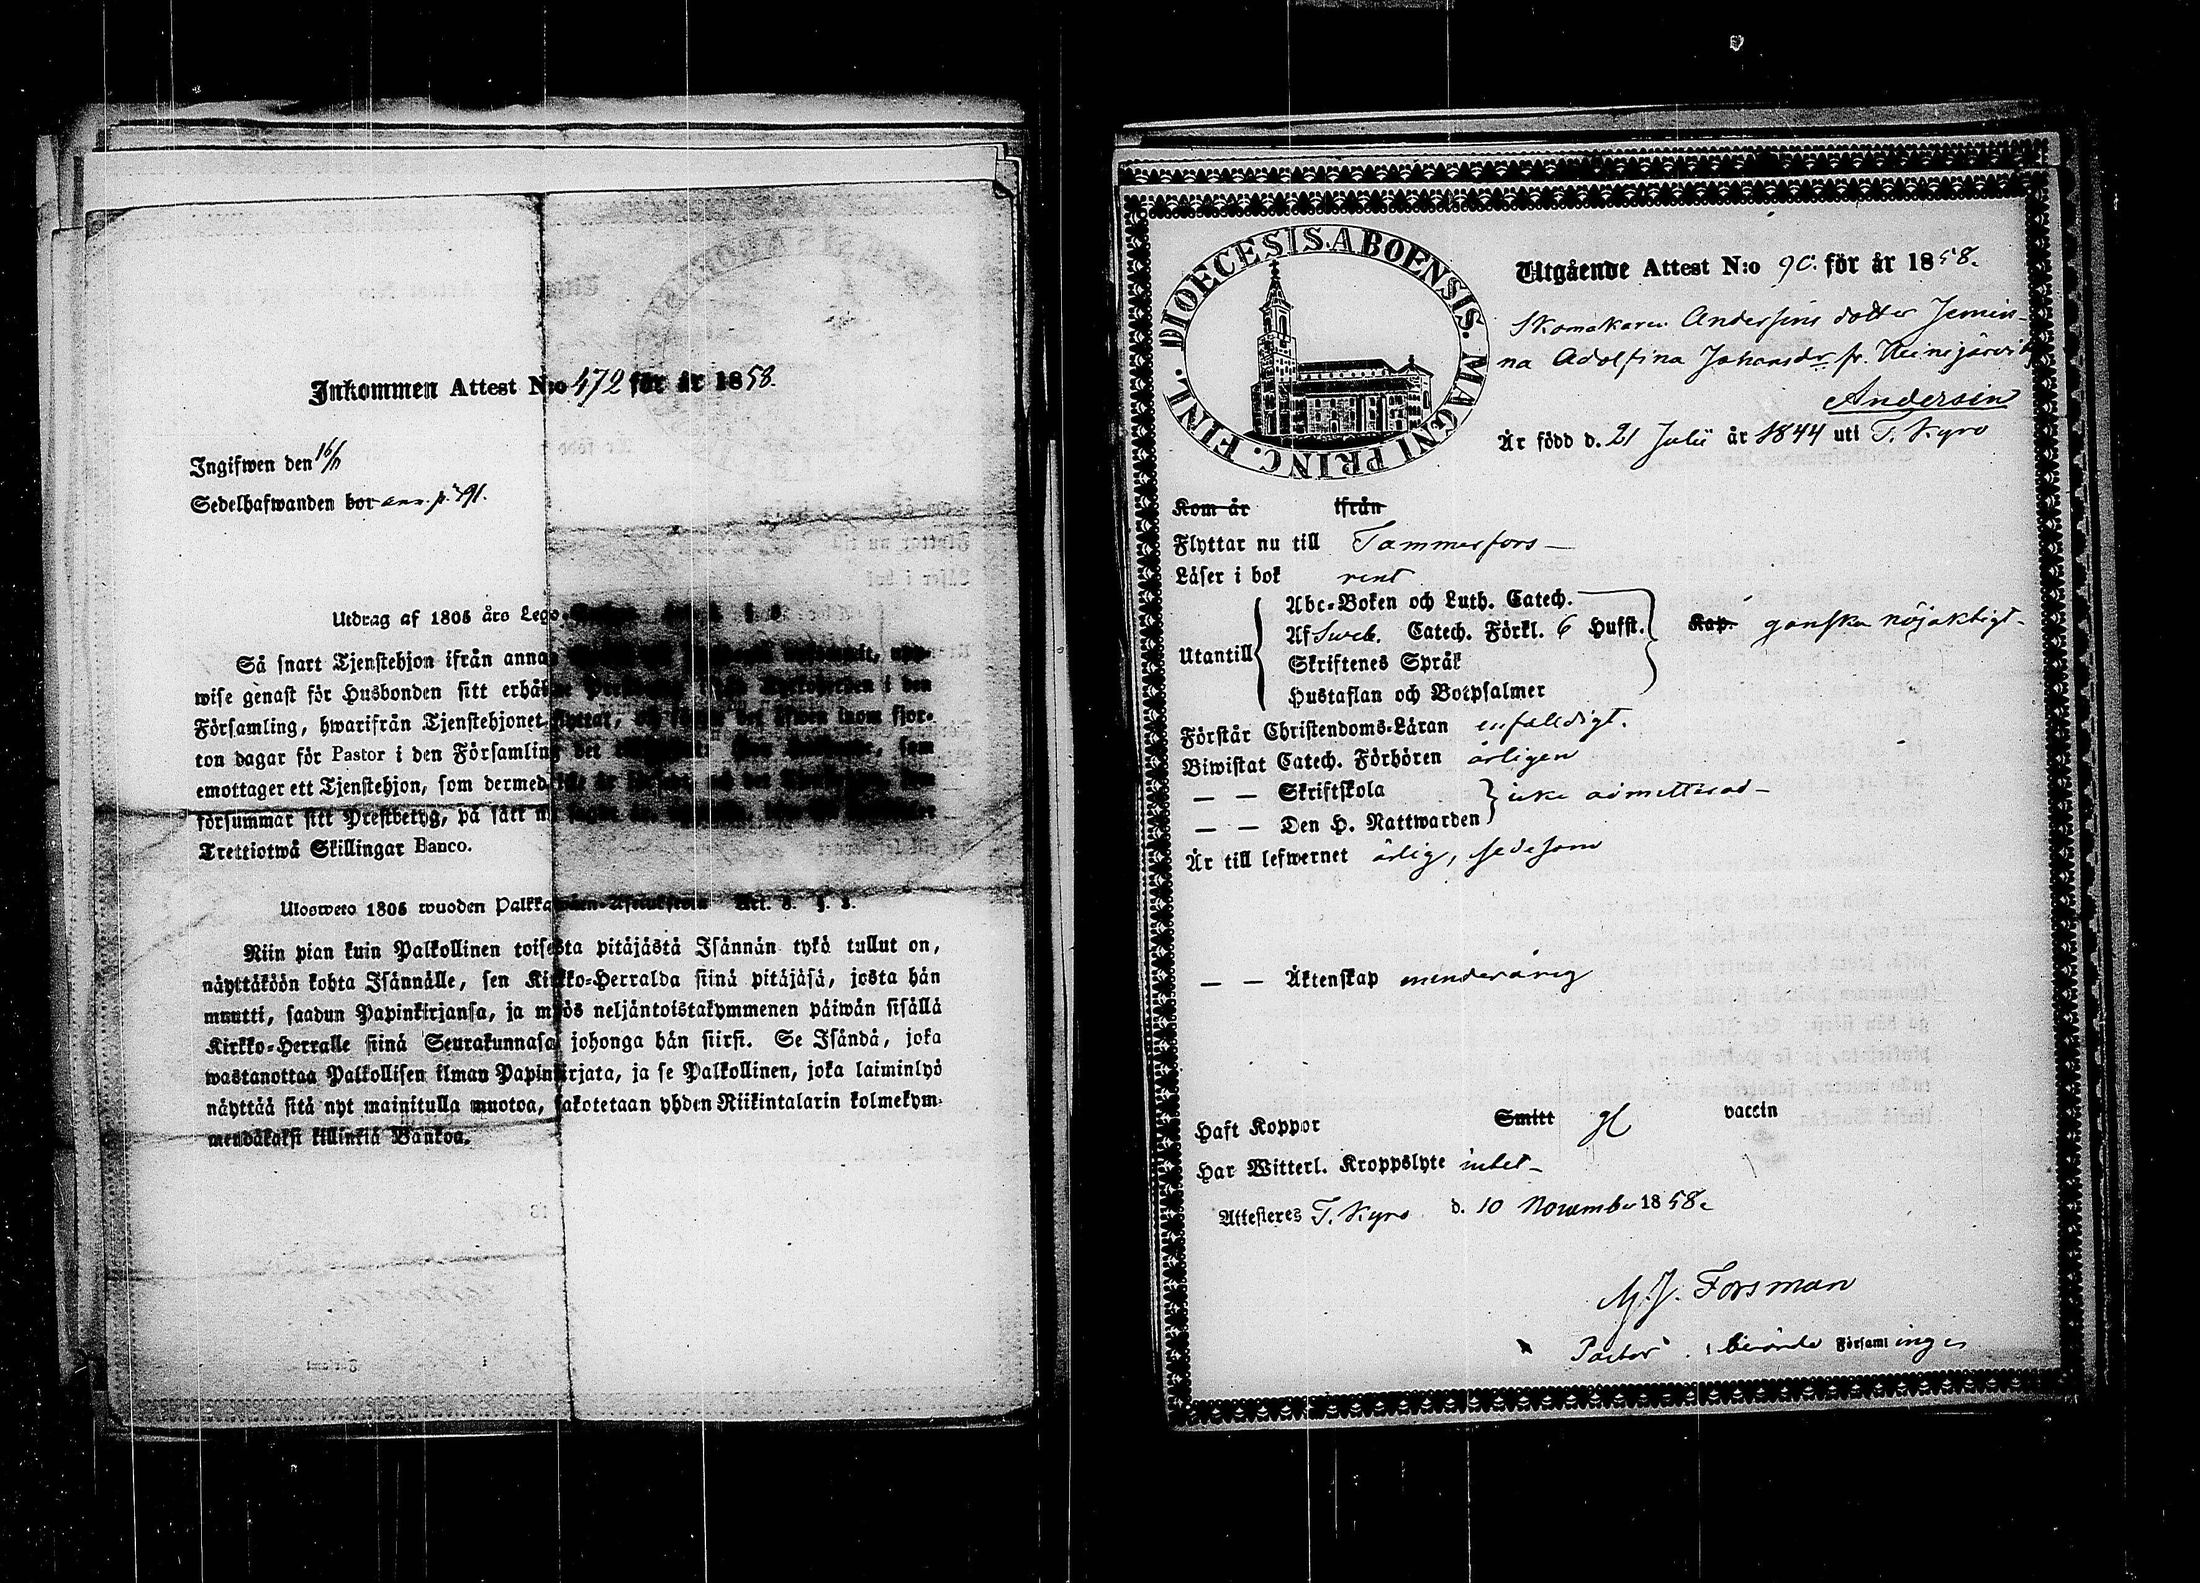 Inkommen Attest N:o 472 för år 1858.
Ingifwen den 16/11
Sedelhafwanden bor ann. p. 491.
Utdrag af 1805 års Lego-
Så snart Tjenstehjon ifrån annan
wise genast för Husbonden sitt i den
Församling, hwarifrån Tjenstehjonet flyttat, inom fjor-
ton dagar för Pastor i den Församling det som
emottager ett Tjenstehjon, som dermed
försummar sitt Prestbetyg, på sätt
Trettiotwå Skillingar Banco.
Ulosweto 1805 wuoden Palkka Art. 8. §. 8.
Niin pian kuin Palkollinen toisesta pitäjästä Isännän tykö tullut on,
näyttäköön kohta Isännälle, sen Kirkko-Herralda siinä pitäjäsä, josta hän
muutti, saadun Papinkirjansa, ja myös neljäntoistakymmenen päiwän sisällä
Kirkko-Herralle siinä Seurakunnasa johonga hän siirsi. Se Isändä, joka
wastanottaa Palkollisen ilman Papinkirjata, ja se Palkollinen, joka laiminlyö
näyttää sitä nyt mainitulla muotoa, sakotetaan yhden Riikintalarin kolmekym-
mendäkaksi killinkiä Bankoa.
FINL. DIOECESIS. ABOENSIS. MAGNI PRINC.
Utgående Attest N:o 90. för år 1858.
Skomakaren Andersins dotter Jemin-
na Adolfina Johansdr fr. Heinijärvi
Andersin
Är född d. 21 Julii år 1844 uti T. Kyro
Kom år ifrån
Flyttar nu till Tammerfors
Läser i bok rent
Utantill
Abc-Boken och Luth. Catech.
Af Sweb. Catech. Förkl. 6 Hufst. Kap. ganska nöjaktigt
Skriftenes Språk
Hustaflan och Botpsalmer
Förstår Christendoms-Läran enfalldigt.
Biwistat Catech. Förhören årligen
— — Skriftskola icke admitterad
— — Den H. Nattwarden
Är till lefwernet ärlig, sedesam
— — Äktenskap minderårig
Haft Koppor Smitt vaccin
Har Witterl. Kroppslyte intet
Attesteres T. Kyro d. 10 November 1858.
M. J. Forsman
Pastor i berörde Församlingen